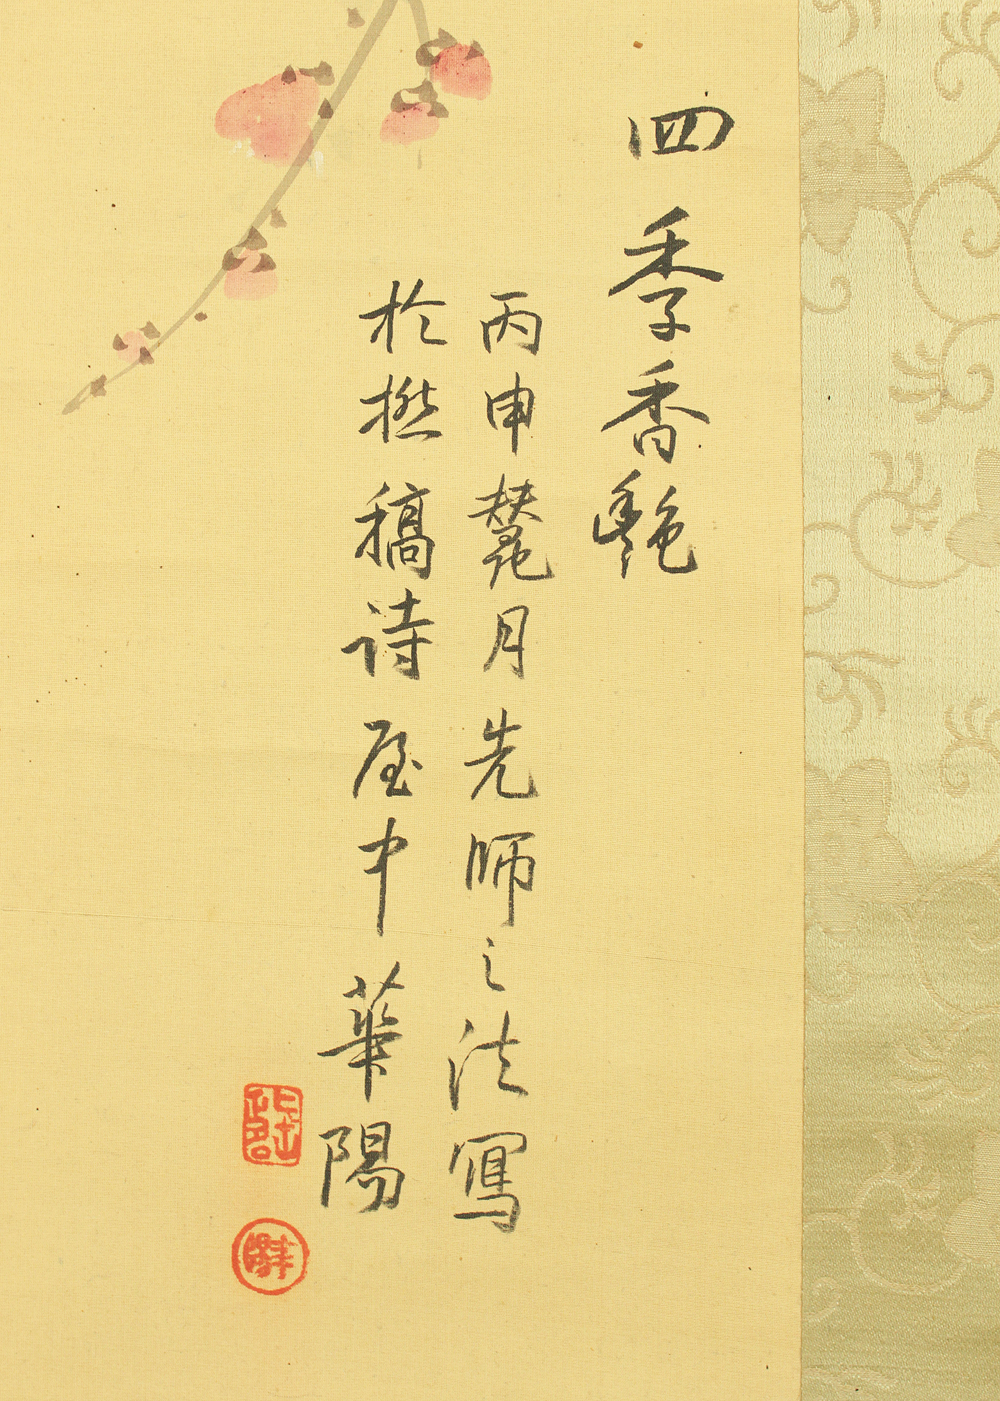 四季香艶
丙申麓月先師之法寫
於撚稿诗屋中 華陽